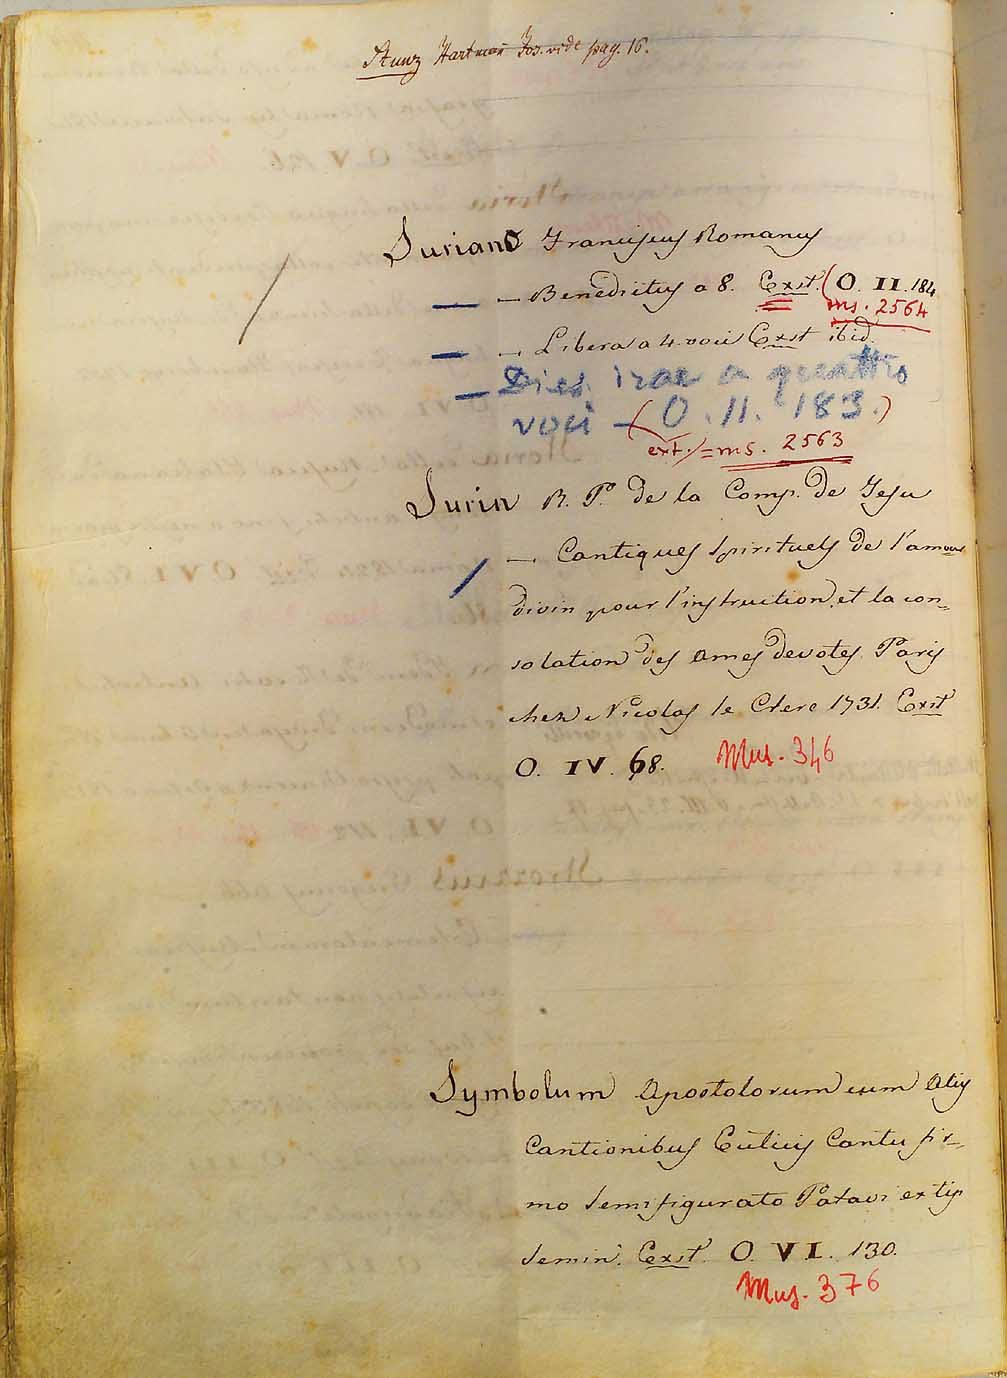 Stunz Hartman Jos. vide pag. 16.
Suriano Franciscus Romanus
— Benedictus a 8. Exst. (O. II. 184
ms. 2564
— Libera a 4. voci Exst ibid.
— Dies irae a quattro
voci — (O. II. 183.)
ext. = ms. 2563
Surin R. P. de la Comp. de Jesu
— Cantiques Spirituels de l'amour
divin pour l'instruction, et la con=
solation des ames devotes. Paris
chez Nicolas le Clerc 1731. Exst
O. IV. 68. Mus. 346
Symbolum Apostolorum cum Aliis
Cantionibus Cantu fir=
mo Semifigurato Patavi ex typ
Semin. Exst. O. VI. 130.
Mus. 376